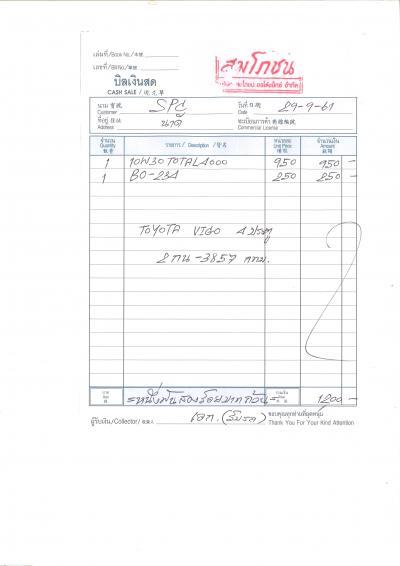 เล่มที่/Book No./本號
เลขที่/Bill No./號
สมโภชน์
บิลเงินสด
CASH SALE / 現沽單
นาม 寶號 SPC วันที่ 日期 29-9-61
Customer Date
ที่อยู่ 住址 นาดี ทะเบียนการค้า 商標編號
Address Commercial License
จำนวน รายการ / Description / 貨名 หน่วยละ จำนวนเงิน
Quantity Unit Price Amount
數量
1 10W30 TOTAL 4000 950 950 -
1 BO-234 250 250 -
TOYOTA VIGO 4 ประตู
2 กน - 3857 กทม.
บาท =หนึ่งพันสองร้อยบาทถ้วน= รวมเงิน 1200 -
ผู้รับเงิน/Collector/ ขอบคุณทุกท่านที่อุดหนุน
Thank You For Your Kind Attention